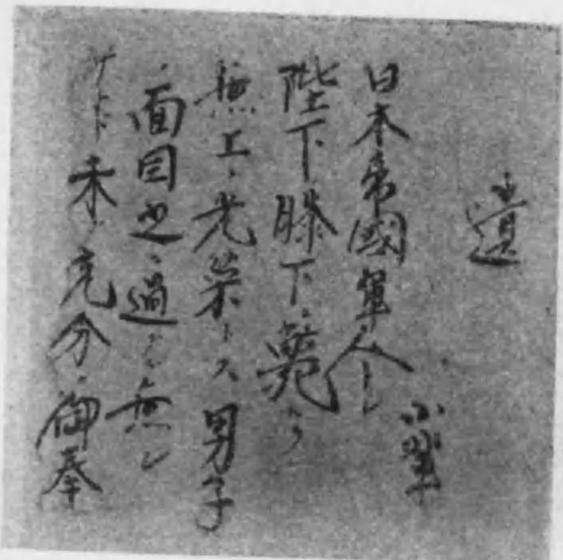 遺
小輩
日本帝國軍人トシ
陛下膝下ニ斃ル
無上ノ光栄トス男子
ノ面目之ニ過ル無シ
未ダ充分ノ御奉